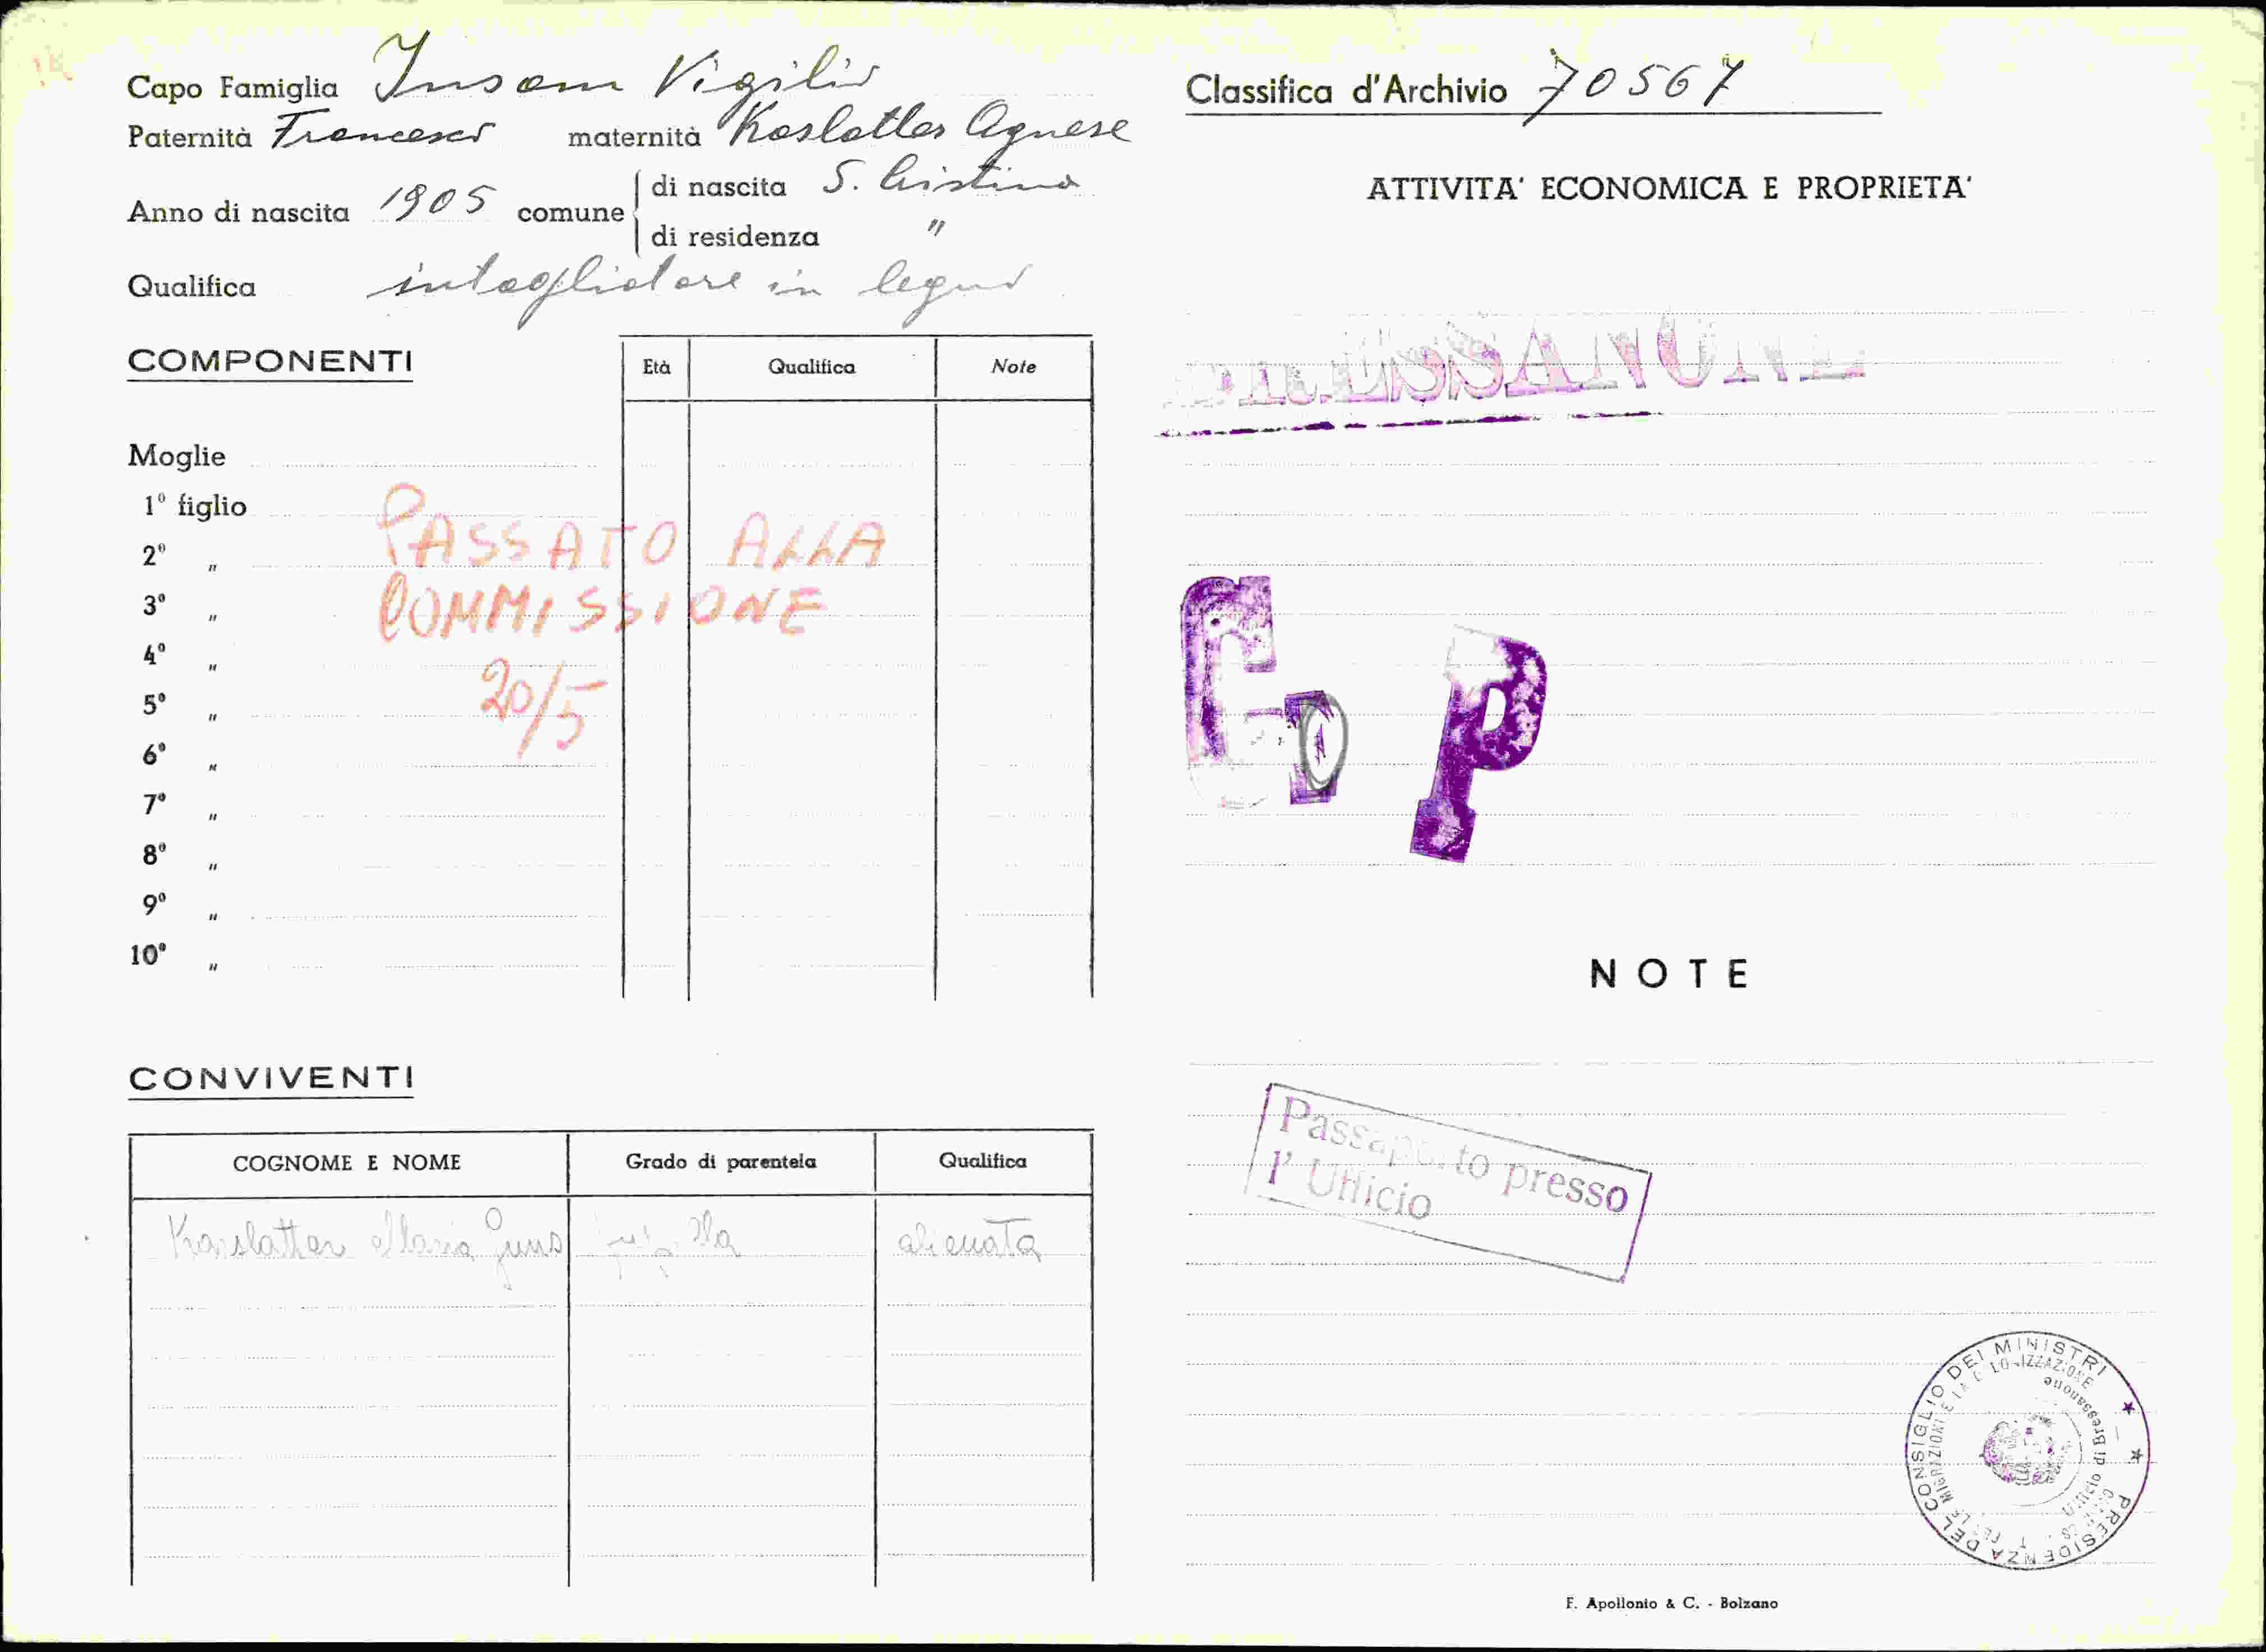 Capo Famiglia Insam Vigilio
Paternità Francesco maternità Kaslatter Agnese
Anno di nascita 1905 comune
di nascita S. Cristina
di residenza "
Qualifica intagliatore in legno
COMPONENTI
Età Qualifica Note
Moglie
1° figlio
2° "
3° "
4° "
5° "
6° "
7° "
8° "
9° "
10° "
PASSATO ALLA
COMMISSIONE
20/5
CONVIVENTI
COGNOME E NOME Grado di parentela Qualifica
Karslatter Maria pupilla alienata
Classifica d'Archivio 70567
ATTIVITA' ECONOMICA E PROPRIETA'
BRESSANONE
G P
NOTE
Passaporto presso
l' Ufficio
PRESIDENZA DEL CONSIGLIO DEI MINISTRI
Ufficio di Bressanone
F. Apollonio & C. - Bolzano